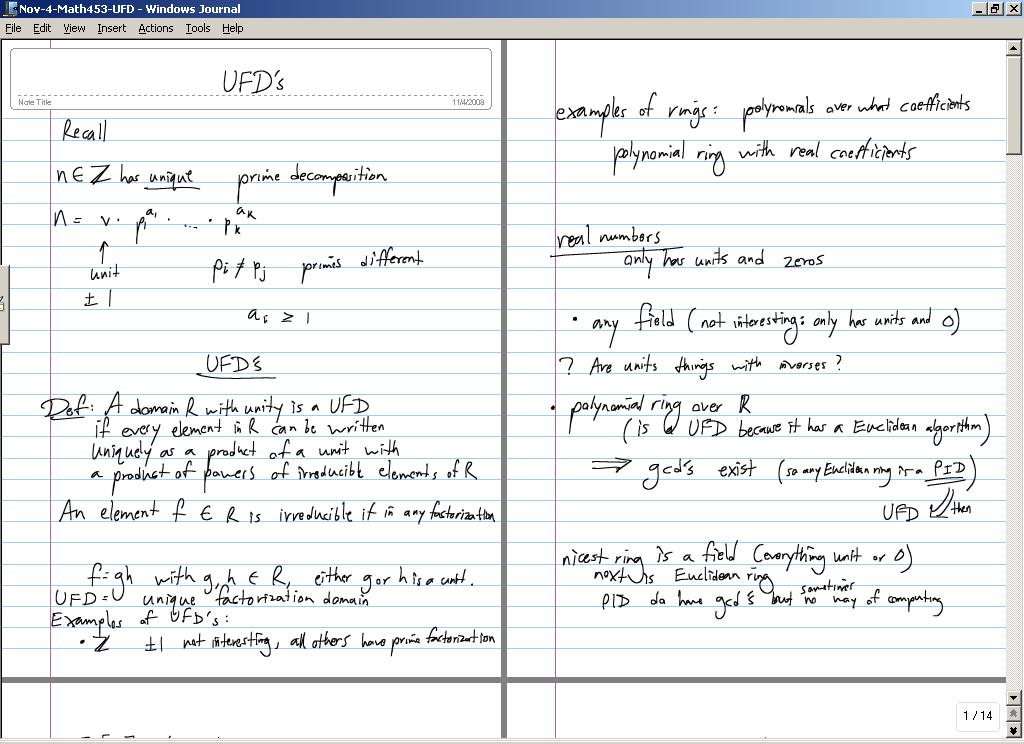 Nov-4-Math453-UFD - Windows Journal
File Edit View Insert Actions Tools Help
UFD's
Note Title 11/4/2008
Recall
n ∈ ℤ has unique prime decomposition
n = v · p₁^a₁ · ... · pₖ^aₖ
↑
unit
± 1
pᵢ ≠ pⱼ primes different
aᵢ ≥ 1
UFD's
Def: A domain R with unity is a UFD
if every element in R can be written
uniquely as a product of a unit with
a product of powers of irreducible elements of R
An element f ∈ R is irreducible if in any factorization
f=gh with g, h ∈ R, either g or h is a unit.
UFD = unique factorization domain
Examples of UFD's:
• ℤ ±1 not interesting, all others have prime factorization
examples of rings: polynomials over what coefficients
polynomial ring with real coefficients
real numbers
only has units and zeros
• any field (not interesting: only has units and 0)
? Are units things with inverses?
• polynomial ring over R
(is a UFD because it has a Euclidean algorithm)
⇒ gcd's exist (so any Euclidean ring is a PID)
UFD ⇙ then
nicest ring is a field (everything unit or 0)
next is Euclidean ring
PID do have gcd's but sometimes no way of computing
1 / 14